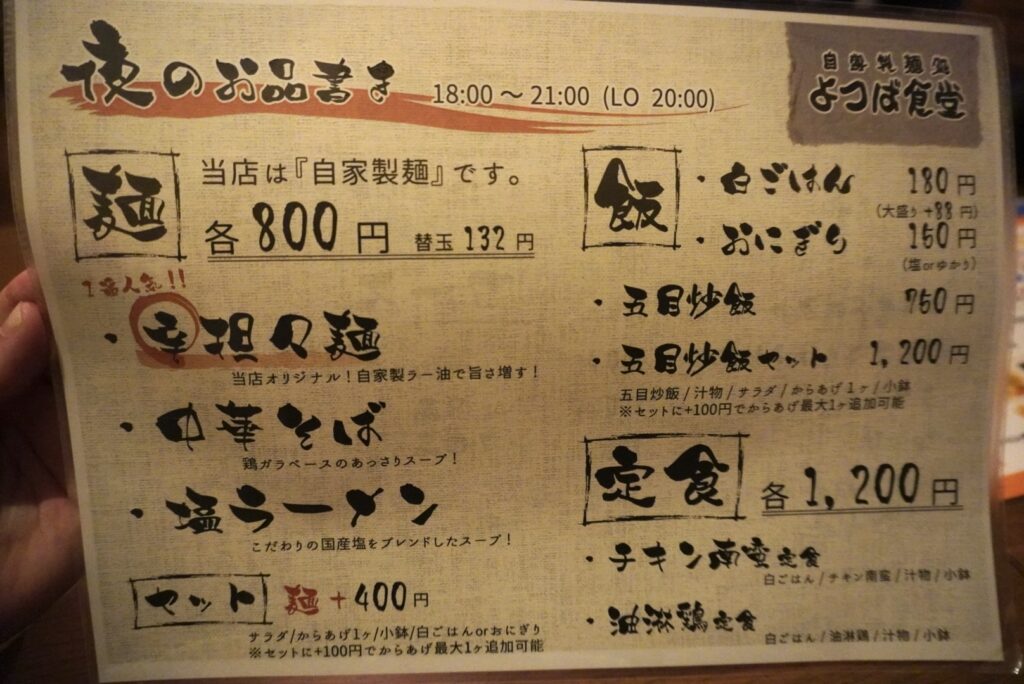 夜のお品書き 18:00～21:00 (LO 20:00)
自家製麺処
よつば食堂
麺
当店は『自家製麺』です。
各800円 替玉132円
1番人気!!
・辛担々麺
当店オリジナル！自家製ラー油で旨さ増す！
・中華そば
鶏ガラベースのあっさりスープ！
・塩ラーメン
こだわりの国産塩をブレンドしたスープ！
セット 麺+400円
サラダ/からあげ1ヶ/小鉢/白ごはんorおにぎり
※セットに+100円でからあげ最大1ヶ追加可能
飯
・白ごはん 180円
(大盛り+88円)
・おにぎり 150円
(塩orゆかり)
・五目炒飯 750円
・五目炒飯セット 1,200円
五目炒飯/汁物/サラダ/からあげ1ヶ/小鉢
※セットに+100円でからあげ最大1ヶ追加可能
定食 各1,200円
・チキン南蛮定食
白ごはん/チキン南蛮/汁物/小鉢
・油淋鶏定食
白ごはん/油淋鶏/汁物/小鉢